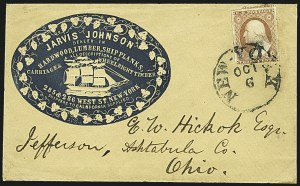 JARVIS JOHNSON
DEALER IN
HARDWOOD, LUMBER, SHIP PLANKS,
CARRIAGE & WHEELRIGHT TIMBER
255 & 286 WEST ST. NEW YORK
NEW-YORK
OCT
6
E. W. Hickok Esqr.
Jefferson, Ashtabula Co.
Ohio.